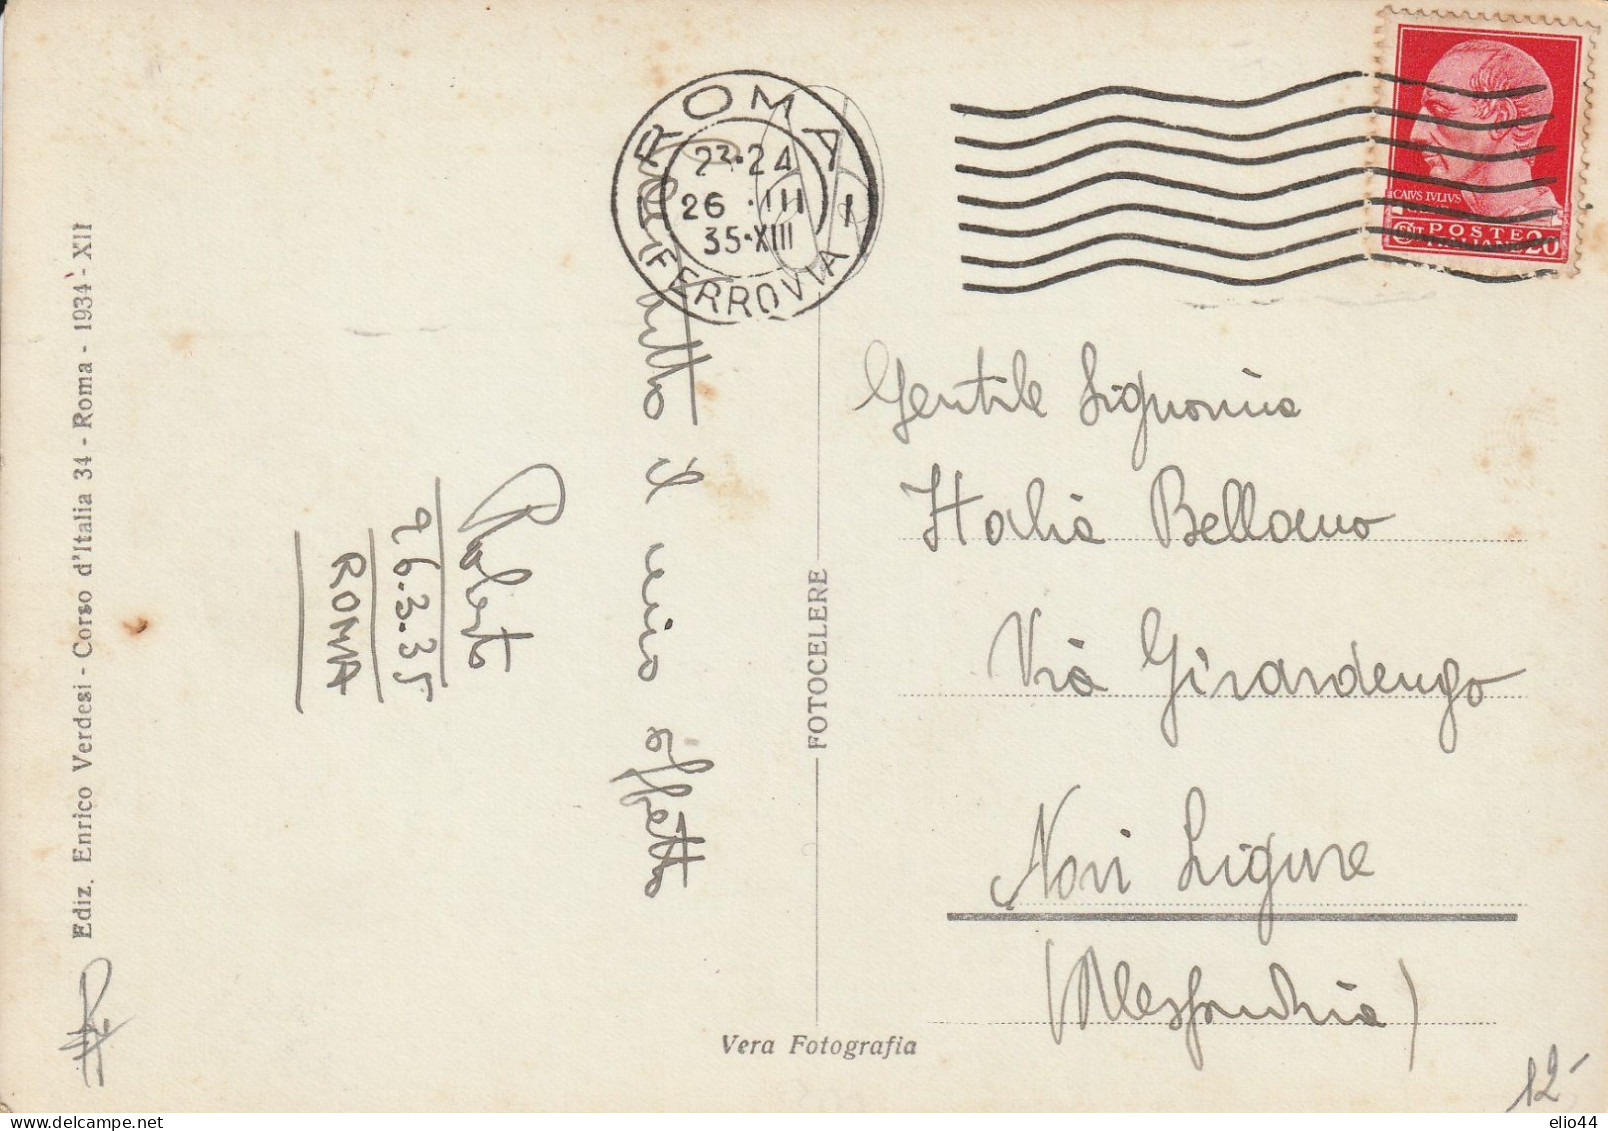 ROMA
FERROVIA
1
23·24
26 · III
35·XIII
CAIVS IVLIVS
POSTE
20
Gentile Signorina
Italia Bellano
Via Girardengo
Novi Ligure
(Alessandria)
tutto il mio affetto
Roberto
26.3.35
ROMA
FOTOCELERE
Vera Fotografia
Ediz. Enrico Verdesi - Corso d'Italia 34 - Roma - 1934 - XII
12-
elio44